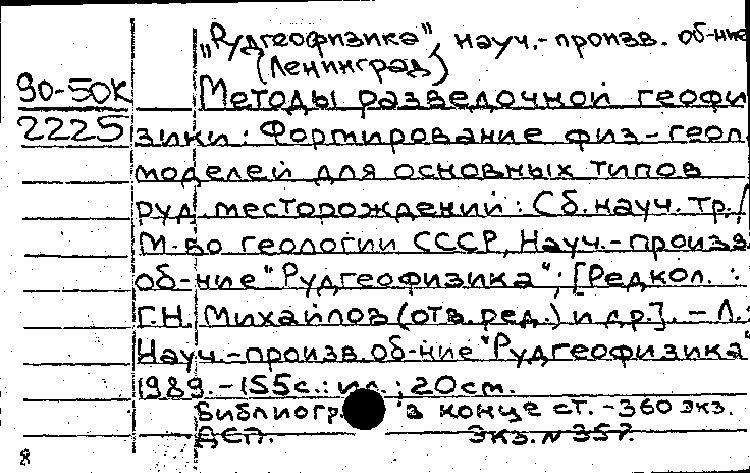 "Рудгеофизика", науч.-произв. об-ние
(Ленинград)
90-50К Методы разведочной геофи
2225 зики: Формирование физ-геол
моделей для основных типов
руд. месторождений: Сб. науч. тр./
М-во геологии СССР, Науч.-произв.
об-ние "Рудгеофизика"; [Редкол.:
Г.Н. Михайлов (отв. ред.) и др.]. - Л.:
Науч.-произв. об-ние "Рудгеофизика"
1989. - 155с.: ил.; 20см.
Библиогр. в конце ст. - 360 экз.
ДЕП. Экз. N 357.
8